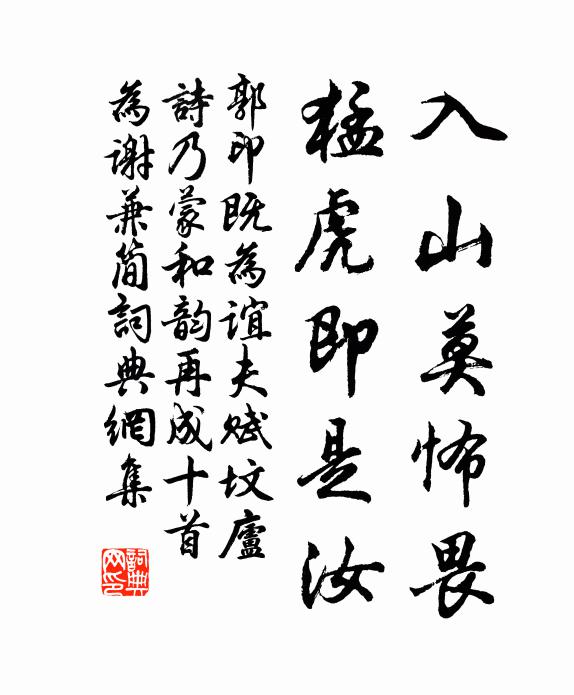 入山莫怖畏
猛虎即是汝
郭印既為誼夫賦坟廬
詩乃蒙和韵再成十首
為谢兼简詞典網集
詞典
网印